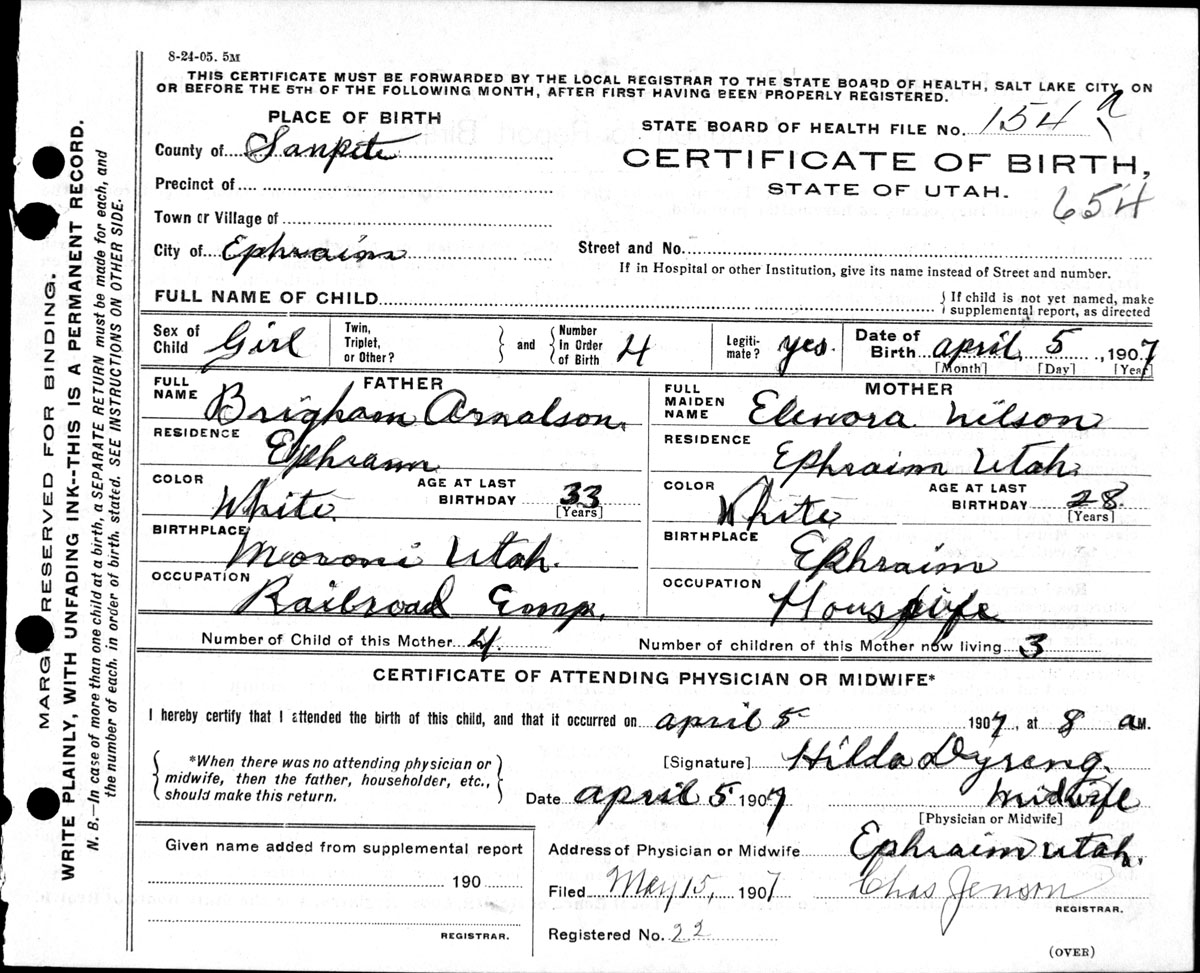 8-24-05. 5M
THIS CERTIFICATE MUST BE FORWARDED BY THE LOCAL REGISTRAR TO THE STATE BOARD OF HEALTH, SALT LAKE CITY, ON
OR BEFORE THE 5TH OF THE FOLLOWING MONTH, AFTER FIRST HAVING BEEN PROPERLY REGISTERED.
PLACE OF BIRTH
STATE BOARD OF HEALTH FILE No. 154 a
County of Sanpete
CERTIFICATE OF BIRTH,
Precinct of
STATE OF UTAH.
654
Town or Village of
City of Ephraim
Street and No.
If in Hospital or other Institution, give its name instead of Street and number.
FULL NAME OF CHILD
{ If child is not yet named, make supplemental report, as directed
Sex of Child Girl Twin, Triplet, or Other? } and { Number In Order of Birth 4 Legitimate? yes. Date of Birth april, 5, 1907
[Month] [Day] [Year]
FATHER
MOTHER
FULL NAME Brigham Arnalson.
FULL MAIDEN NAME Elenora Nilson
RESIDENCE Ephraim
RESIDENCE Ephraim Utah.
COLOR White. AGE AT LAST BIRTHDAY 33 [Years]
COLOR White AGE AT LAST BIRTHDAY 28. [Years]
BIRTHPLACE Moroni Utah.
BIRTHPLACE Ephraim
OCCUPATION Railroad Emp.
OCCUPATION Houswife
Number of Child of this Mother 4.
Number of children of this Mother now living 3
CERTIFICATE OF ATTENDING PHYSICIAN OR MIDWIFE*
I hereby certify that I attended the birth of this child, and that it occurred on april 5 1907, at 8 a M.
*When there was no attending physician or
midwife, then the father, householder, etc.,
should make this return.
[Signature] Hilda Dyreng.
Date april 5 1907 Midwife
[Physician or Midwife]
Given name added from supplemental report
190
REGISTRAR.
Address of Physician or Midwife Ephraim Utah.
Filed May 15, 1907 Chas Jenson
REGISTRAR.
Registered No. 22
(OVER)
MARGIN RESERVED FOR BINDING.
WRITE PLAINLY, WITH UNFADING INK--THIS IS A PERMANENT RECORD.
N. B.—In case of more than one child at a birth, a SEPARATE RETURN must be made for each, and
the number of each, in order of birth, stated. SEE INSTRUCTIONS ON OTHER SIDE.